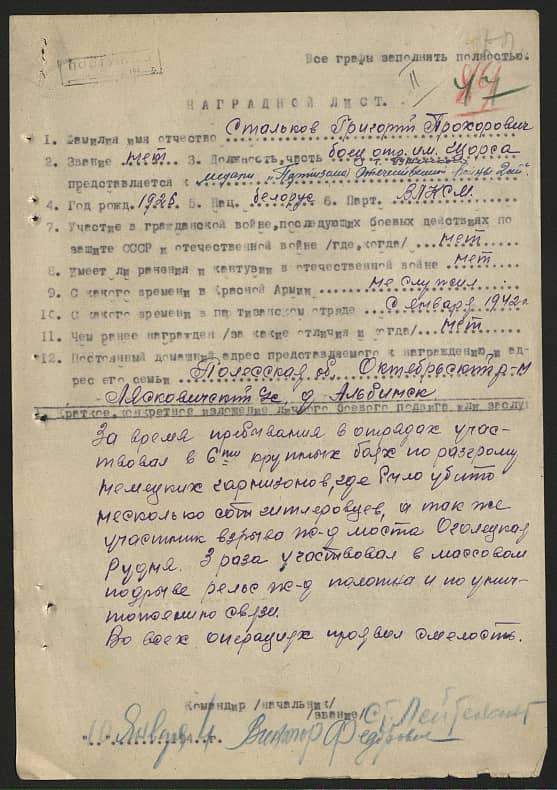 Все графы заполнить полностью.
II
НАГРАДНОЙ ЛИСТ.
1. Фамилия имя отчество Стальков Григорий Прохорович
2. Звание нет 3. Должность, часть боец отр. им. Щорса
представляется к медали "Партизана Отечественной войны 2й ст."
4. Год рожд. 1926 5. Нац. белорус 6. Парт. ВЛКСМ
7. Участие в гражданской войне, последующих боевых действиях по
защите СССР и отечественной войне /где, когда/ нет
8. Имеет ли ранения и кантузии в отечественной войне нет
9. С какого времени в Красной Армии не служил
10. С какого времени в партизанском отряде с января 1942г
11. Чем ранее награжден /за какие отличия и когда/ нет
12. Постоянный домашний адрес представляемого к награждению и ад-
рес его семьи Полесская об. Октябрьский р-н
Лясковический с/с д. Альбинск
Краткое, конкретное изложение личного боевого подвига или заслуг
За время пребывания в отрядах учас-
твовал в 6ти крупных боях по разгрому
немецких гарнизонов, где было убито
несколько сот гитлеровцев, а так же
участник взрыва ж-д моста Оголецкая
Рудня. 3 раза участвовал в массовом
подрыве рельс ж-д полотна и по унич-
тожению связи.
Во всех операциях проявил смелость.
Командир /начальник/
/звание/ Ст. Лейтенант
10 Января Виктор Федорович